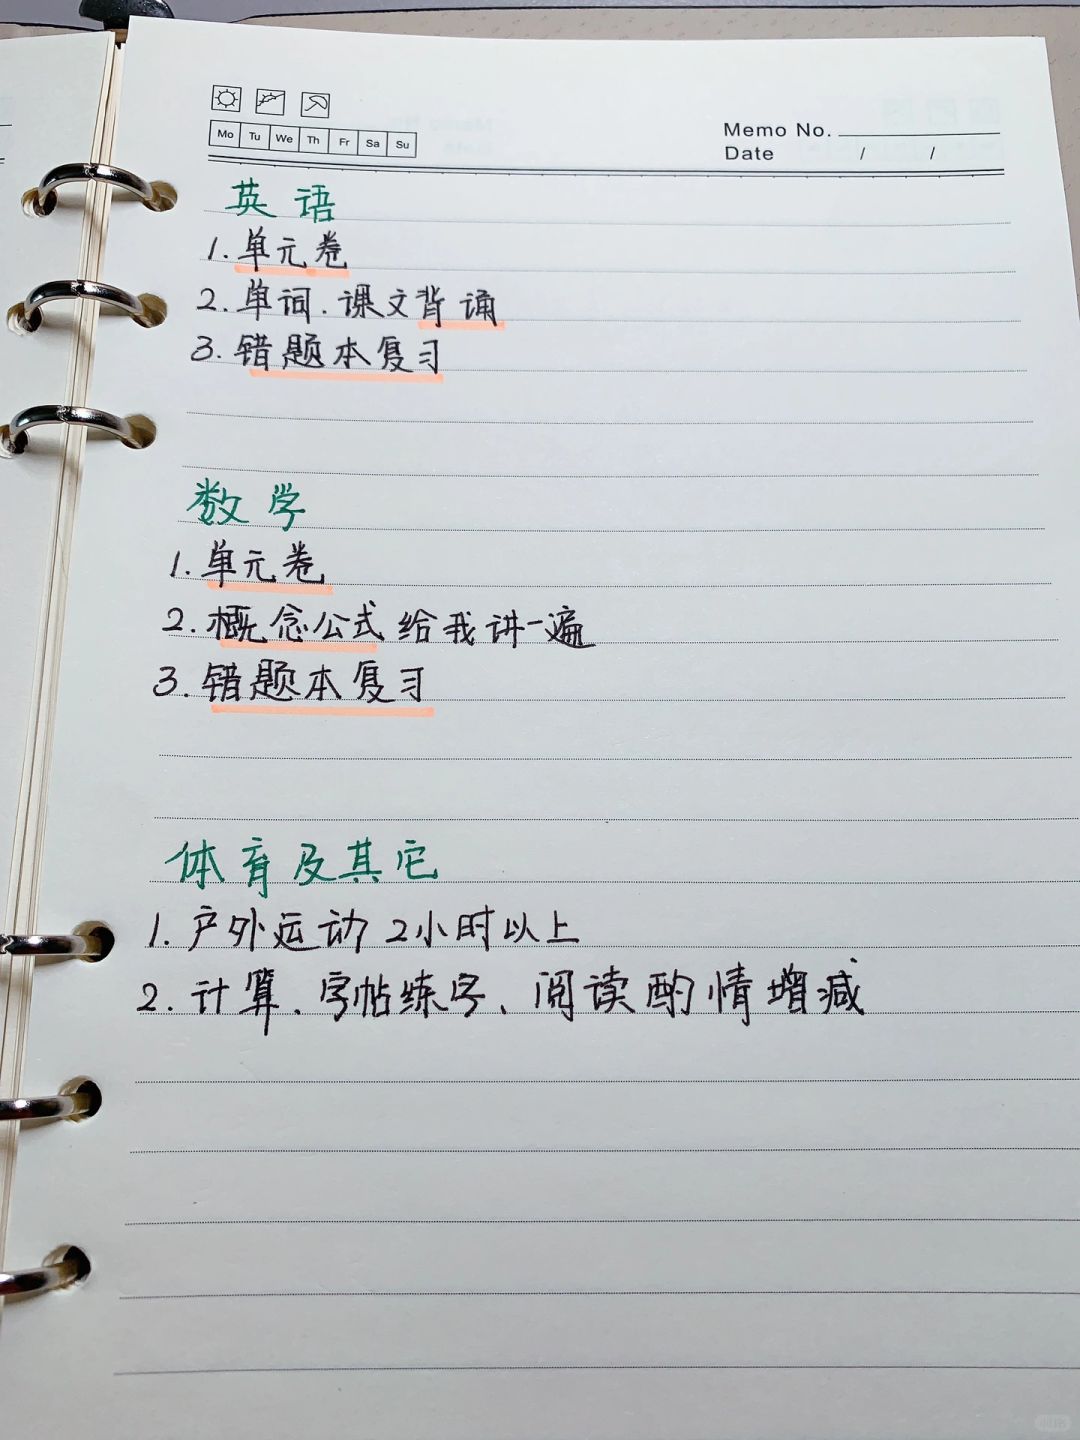 Mo Tu We Th Fr Sa Su
Memo No.
Date / /
英语
1.单元卷
2.单词.课文背诵
3.错题本复习
数学
1.单元卷
2.概念公式给我讲一遍
3.错题本复习
体育及其它
1.户外运动2小时以上
2.计算、字帖练字、阅读酌情增减